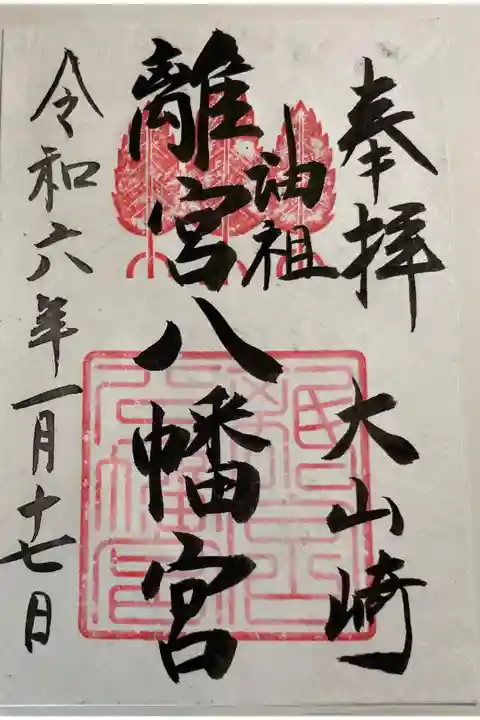 奉拝 大山崎
油祖
離宮八幡宮
令和六年一月十七日
離宮八幡宮